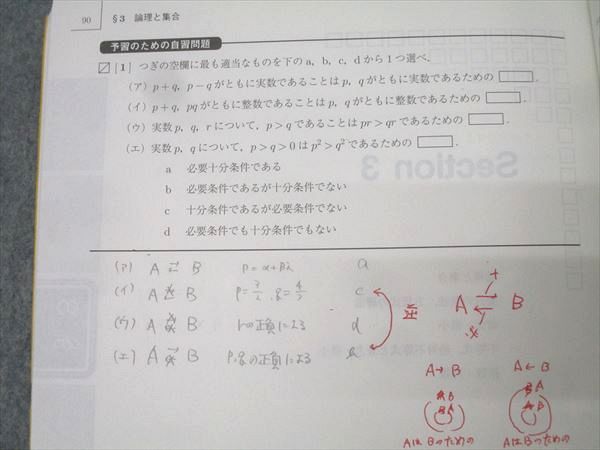 90 §3 論理と集合
予習のための自習問題
[1] つぎの空欄に最も適当なものを下の a, b, c, d から1つ選べ.
(ア) p+q, p−q がともに実数であることは p, q がともに実数であるための
(イ) p+q, pq がともに整数であることは p, q がともに整数であるための
(ウ) 実数 p, q, r について, p>q であることは pr>qr であるための
(エ) 実数 p, q について, p>q>0 は p²>q² であるための
a 必要十分条件である
b 必要条件であるが十分条件でない
c 十分条件であるが必要条件でない
d 必要条件でも十分条件でもない
Section 3
(ア) A ⇄ B p=α+βi a
(イ) A B c
(ウ) A B rの正負による d
(エ) A B p,qの正負による
A B
A→B A←B
AはBのための AはBのための